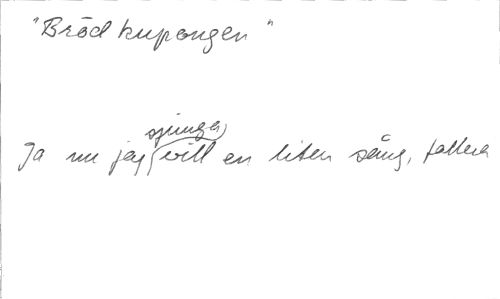 "Brödkupongen"
sjunga
Ja nu jag vill en liten sång, fallera